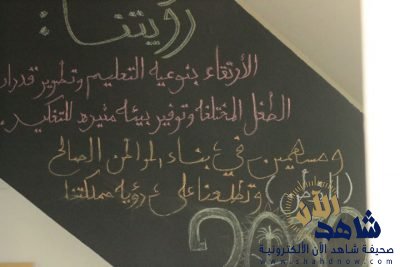 رؤيتنا :
الأرتقاء بنوعيه التعليم وتطوير قدرات
الطفل المختلفه وتوفير بيئه مثيره للتفكير .
ومساهمين في بناء المواطن الصالح
وتطلعنا على رؤيه مملكتنا
شاهد الآن
صحيفة شاهد الآن الالكترونية
www.shahdnow.com